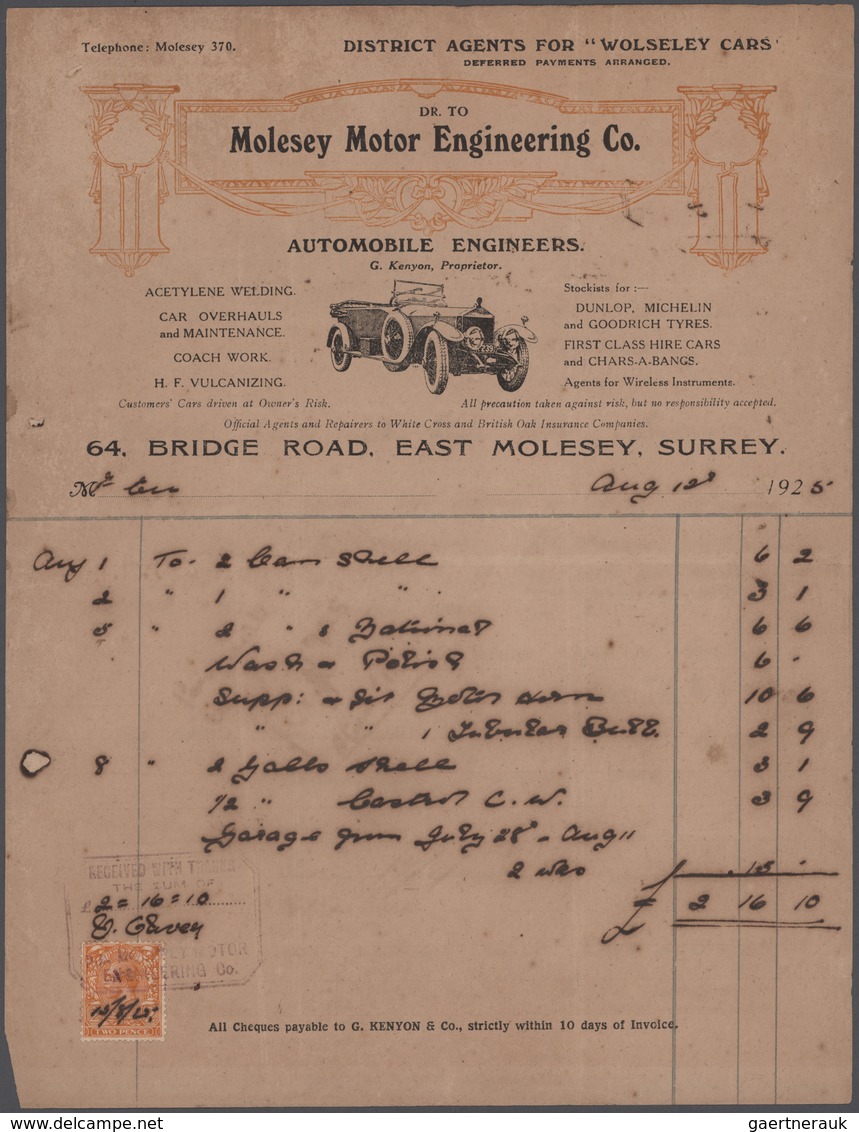 Telephone: Molesey 370.
DISTRICT AGENTS FOR "WOLSELEY CARS'
DEFERRED PAYMENTS ARRANGED.
DR. TO
Molesey Motor Engineering Co.
AUTOMOBILE ENGINEERS.
G. Kenyon, Proprietor.
ACETYLENE WELDING.
CAR OVERHAULS
and MAINTENANCE.
COACH WORK.
H. F. VULCANIZING.
Stockists for :—
DUNLOP, MICHELIN
and GOODRICH TYRES.
FIRST CLASS HIRE CARS
and CHARS-A-BANGS.
Agents for Wireless Instruments.
Customers' Cars driven at Owner's Risk.
All precaution taken against risk, but no responsibility accepted.
Official Agents and Repairers to White Cross and British Oak Insurance Companies.
64, BRIDGE ROAD, EAST MOLESEY, SURREY.
Mr Aug 12 1925
Aug 1 To 2 Cans Shell 6 2
2 " 1 " " 3 1
5 " 2 " National 6 6
Wash & Polish 6 -
Supp: & fit Motor Horn 10 6
" " 1 Tubular 2 9
8 " 2 Galls Shell 3 1
1/2 " Castrol C.W. 3 9
Garage from July 28 - Aug 11
2 wks 15 -
£ 2 16 10
RECEIVED WITH THANKS
THE SUM OF
£ 2 = 16 = 10
MOTOR
ENGINEERING Co.
12/8/25
TWO PENCE
All Cheques payable to G. KENYON & Co., strictly within 10 days of Invoice.
gaertnerauk